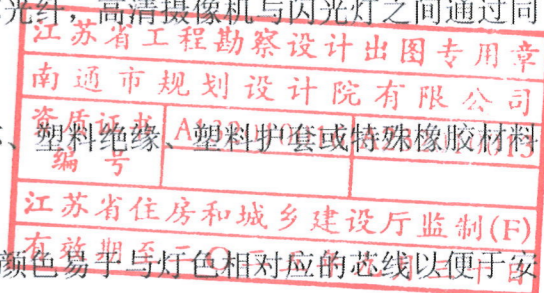 光纤，高清摄像机与闪光灯之间通过同
江苏省工程勘察设计出图专用章
南通市规划设计院有限公司
资质证书
、塑料绝缘、塑料护套或特殊橡胶材料
编号
江苏省住房和城乡建设厅监制(F)
有效期至二〇二
颜色易于与灯色相对应的芯线以便于安